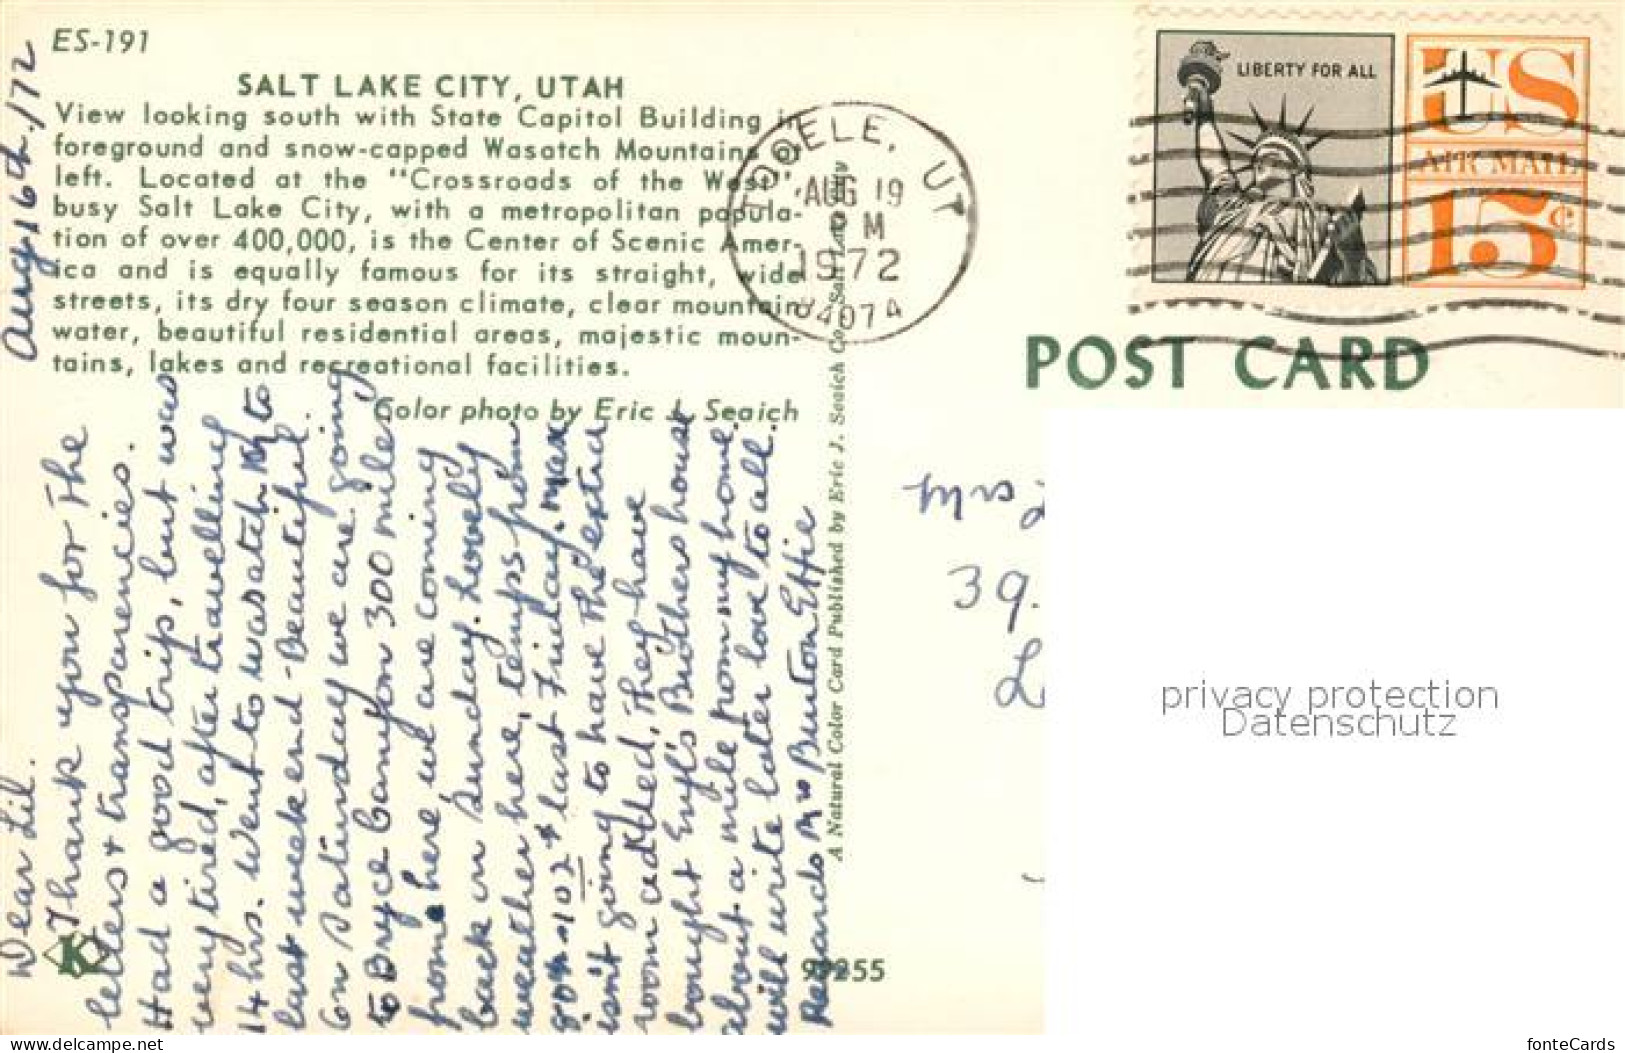 ES-191
SALT LAKE CITY, UTAH
View looking south with State Capitol Building in
foreground and snow-capped Wasatch Mountains at
left. Located at the "Crossroads of the West",
busy Salt Lake City, with a metropolitan popula-
tion of over 400,000, is the Center of Scenic Amer-
ica and is equally famous for its straight, wide
streets, its dry four season climate, clear mountain
water, beautiful residential areas, majestic moun-
tains, lakes and recreational facilities.
Color photo by Eric J. Seaich
TOOELE, UT
AUG 19
PM
1972
84074
LIBERTY FOR ALL
US
AIR MAIL
15¢
POST CARD
A Natural Color Card Published by Eric J. Seaich Co., Salt Lake City
Aug 16th. /72
Dear Lil.
Thank you for the
letters + transparencies.
Had a good trip, but was
very tired, after travelling
14 hrs. Went to Wasatch to
last week end - Beautiful.
On Saturday we are going
to Bryce Canyon 300 miles
from here, we are coming
back on Sunday. Lovely
weather here, temps from
90 - 102 + last Friday.
isn't going to have the extra
room added, they have
bought Brothers house
about a mile from my home.
will write later love to all.
Regards Burton Effie
K
97255
Mrs
39.
privacy protection
Datenschutz
https://www.ansichtskarten-center.de/
fonteCards